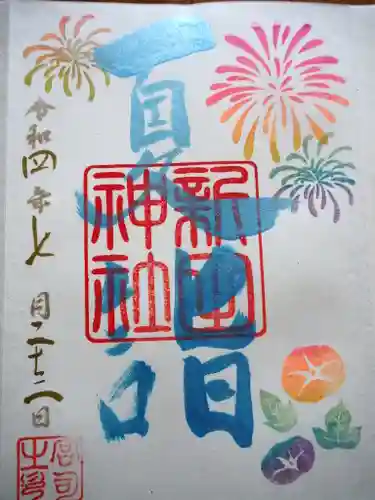 夏詣
新田
神社
令和四年七月二十二日
宮司
之印